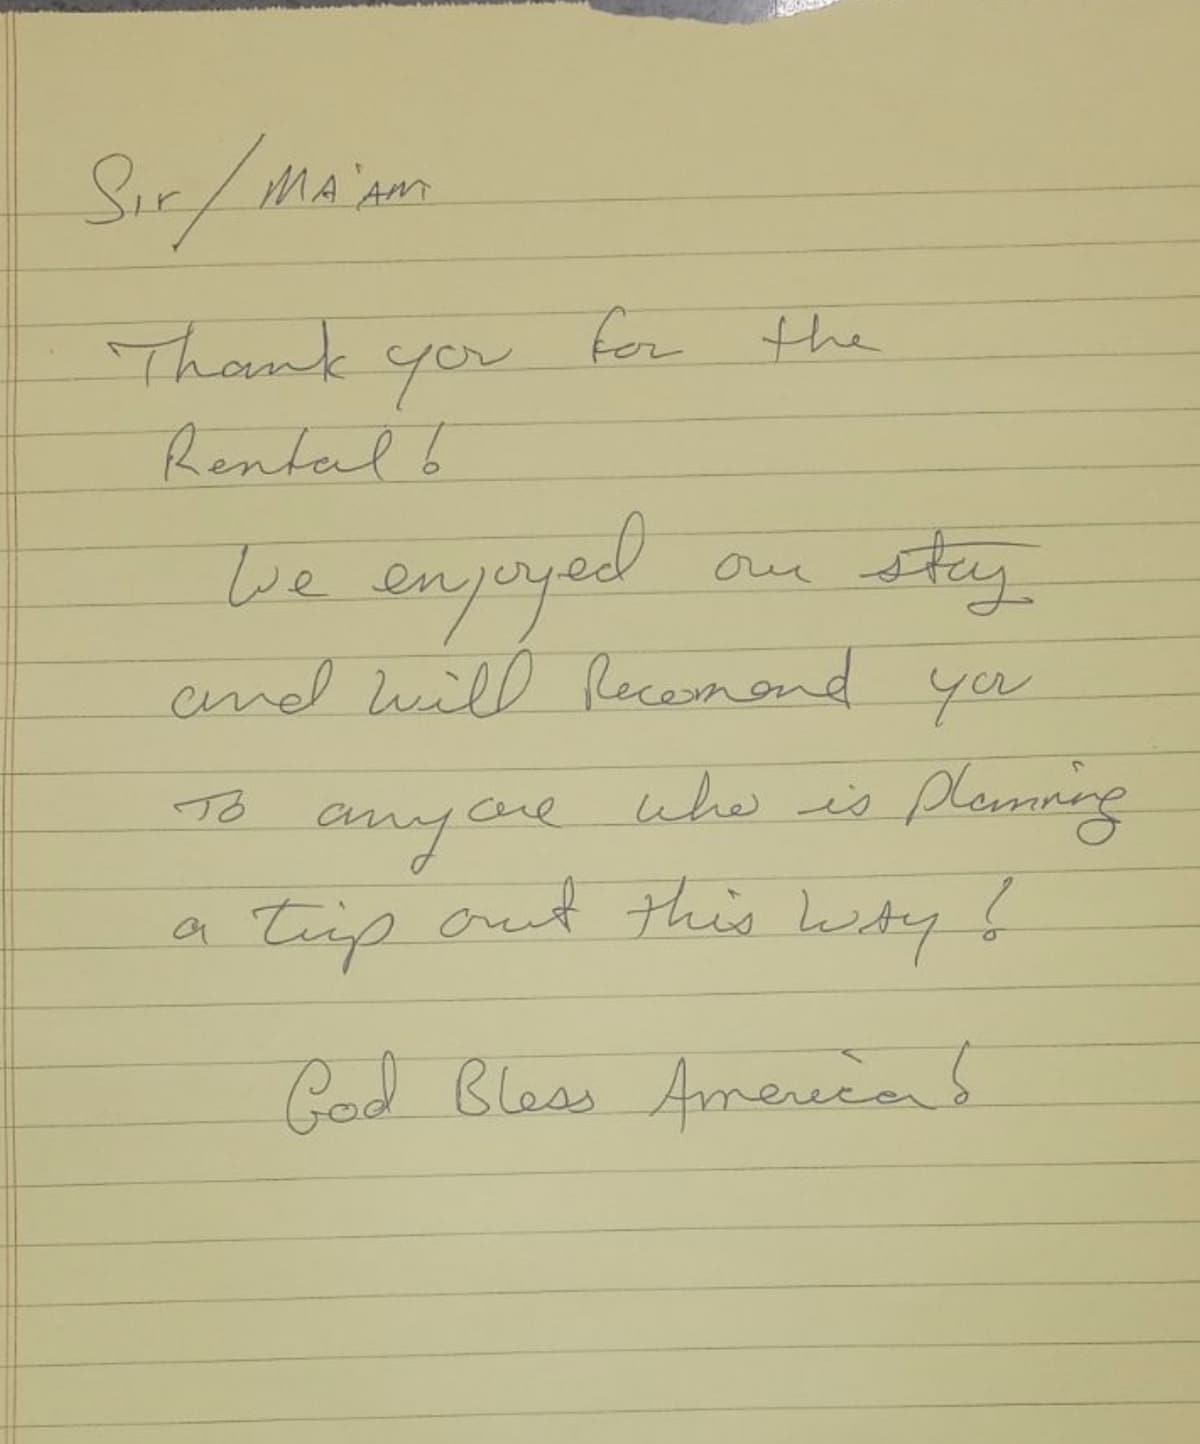 Sir/MA'AM
Thank you for the
Rental!
We enjoyed our stay
and will Recomend you
To anyone who is planning
a trip out this way!
God Bless America!